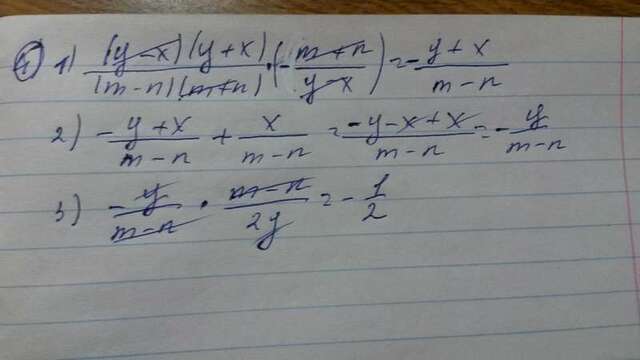 ④ 1) (y-x)(y+x)/(m-n)(m+n) · (- m+n/y-x) = - y+x/m-n
2) - y+x/m-n + x/m-n = -y-x+x/m-n = - y/m-n
3) - y/m-n · m-n/2y = - 1/2